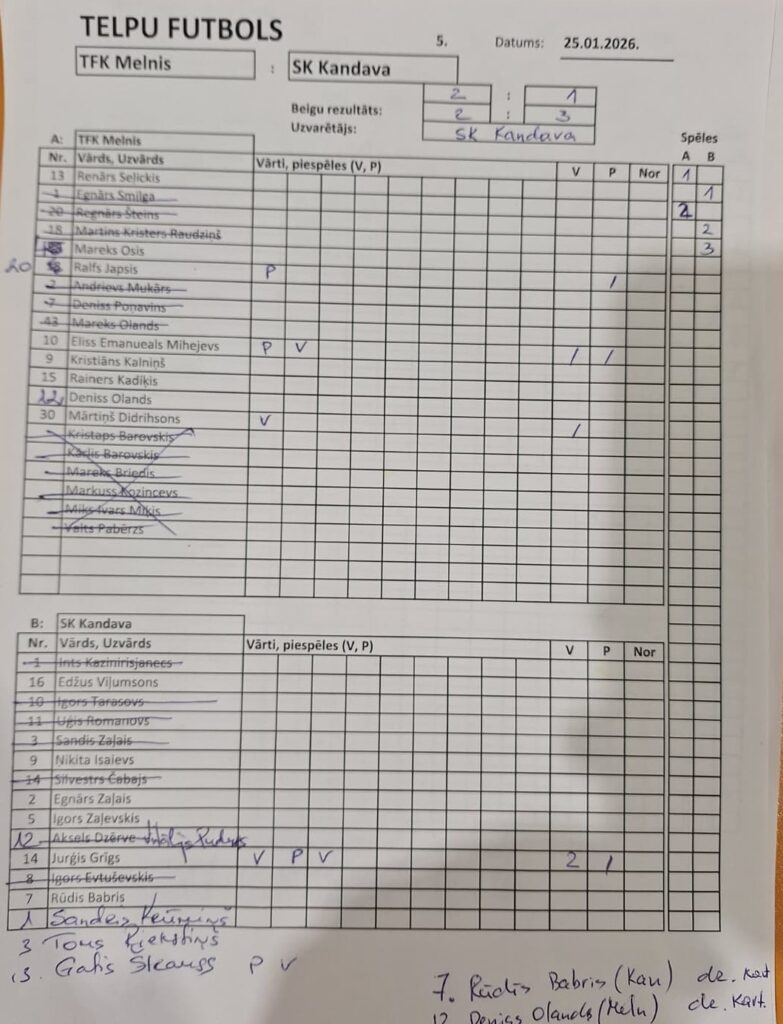 TELPU FUTBOLS
5. Datums: 25.01.2026.
TFK Melnis : SK Kandava
2 : 1
Beigu rezultāts: 2 : 3
Uzvarētājs: SK Kandava
Spēles
A: TFK Melnis A B
Nr. Vārds, Uzvārds Vārti, piespēles (V, P) V P Nor 1
13 Renārs Seļickis 1
1 Egnārs Smilga 2
20 Regnārs Šteins 2
18 Martins Kristers Raudziņš 3
Mareks Osis
20 Ralfs Japsis P /
2 Andrievs Mukārs
7 Deniss Poņavins
43 Mareks Olands
10 Eliss Emanueals Mihejevs P V / /
9 Kristiāns Kalniņš
15 Rainers Kadiķis
Deniss Olands
30 Mārtiņš Didrihsons V /
Kristaps Barovskis
Kārlis Barovskis
Mareks Briedis
Markuss Kozincevs
Miks Ivars Miķis
Valts Pabērzs
B: SK Kandava
Nr. Vārds, Uzvārds Vārti, piespēles (V, P) V P Nor
1 Ints Kazinirisjanecs
16 Edžus Viļumsons
10 Igors Tarasovs
11 Uģis Romanovs
3 Sandis Zaļais
9 Ņikita Isaievs
14 Silvestrs Čabajs
2 Egnārs Zaļais
5 Igors Zaļevskis
12 Aksels Dzērve
14 Jurģis Grīgs V P V 2 /
8 Igors Evtuševskis
7 Rūdis Babris
1
3 Toms Riekstiņš
13. Gatis Štrauss P V
7. Rūdis Babris (Kan) dz. kart
12 Deniss Olands (Meln) dz. kart.